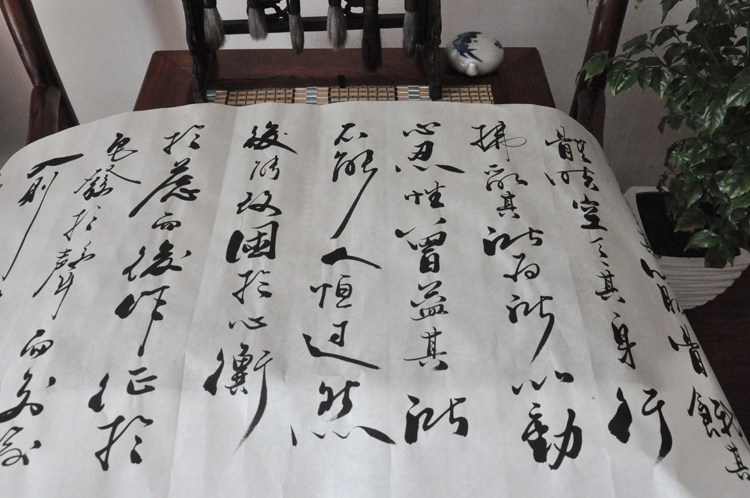 筋骨餓其
體膚空乏其身行
拂亂其所為所以動
心忍性曾益其所
不能人恒过然
後能改困於心衡
於慮而後作征於
色發於聲而後
入則